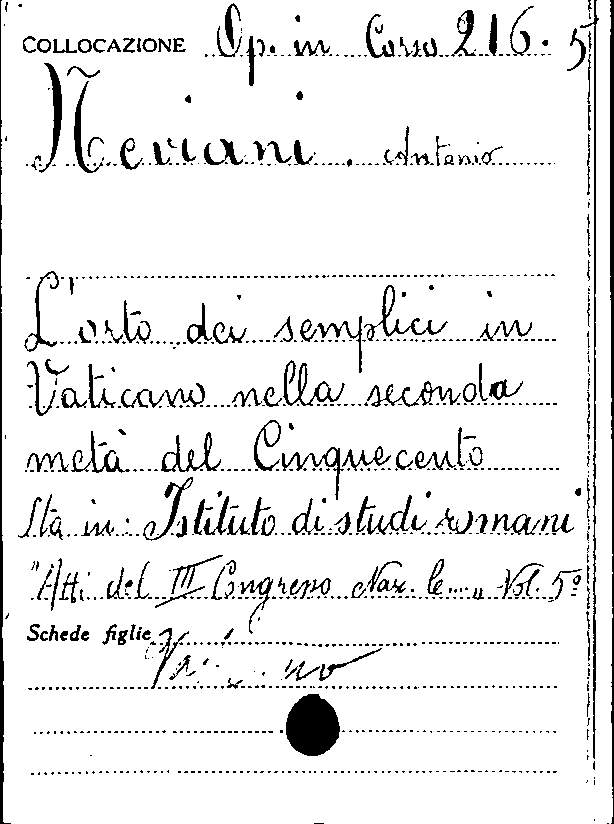 COLLOCAZIONE Op. in Corso 216. 5
Neviani. Antonio
L'orto dei semplici in
Vaticano nella seconda
metà del Cinquecento
Sta in: Istituto di studi romani
"Atti del III Congresso Naz. le...„ Vol. 5º
Schede figlie